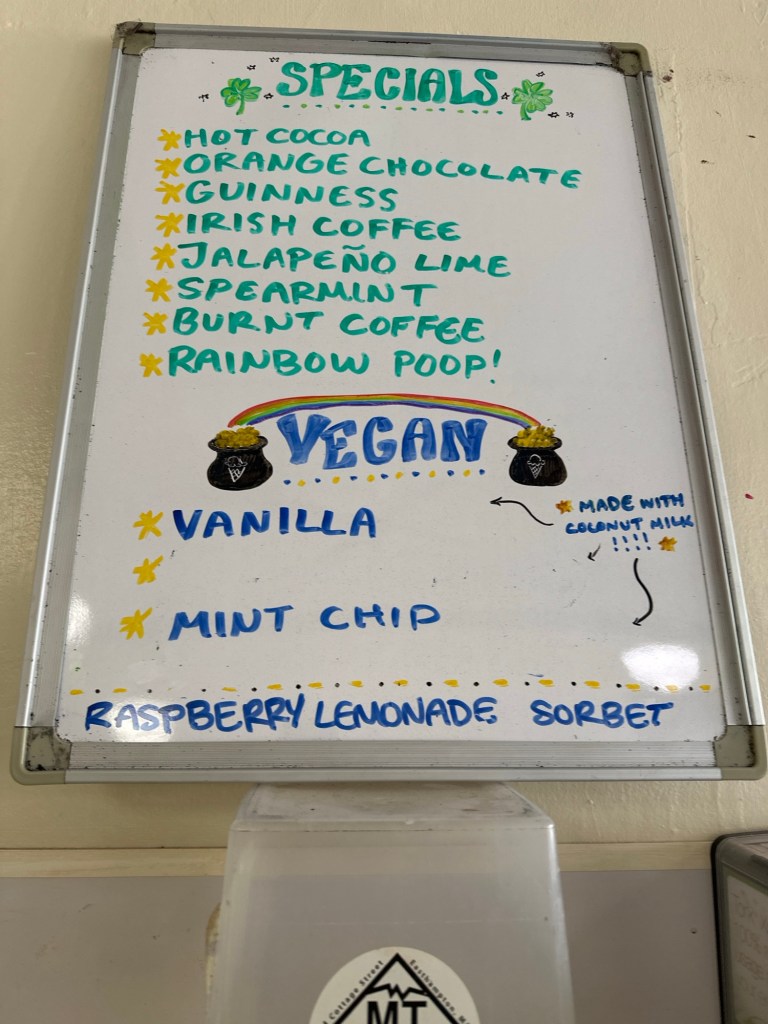 SPECIALS
HOT COCOA
ORANGE CHOCOLATE
GUINNESS
IRISH COFFEE
JALAPEÑO LIME
SPEARMINT
BURNT COFFEE
RAINBOW POOP!
VEGAN
VANILLA
MADE WITH
COCONUT MILK
!!!!
MINT CHIP
RASPBERRY LEMONADE SORBET
Cottage Street
Easthampton, M
MT